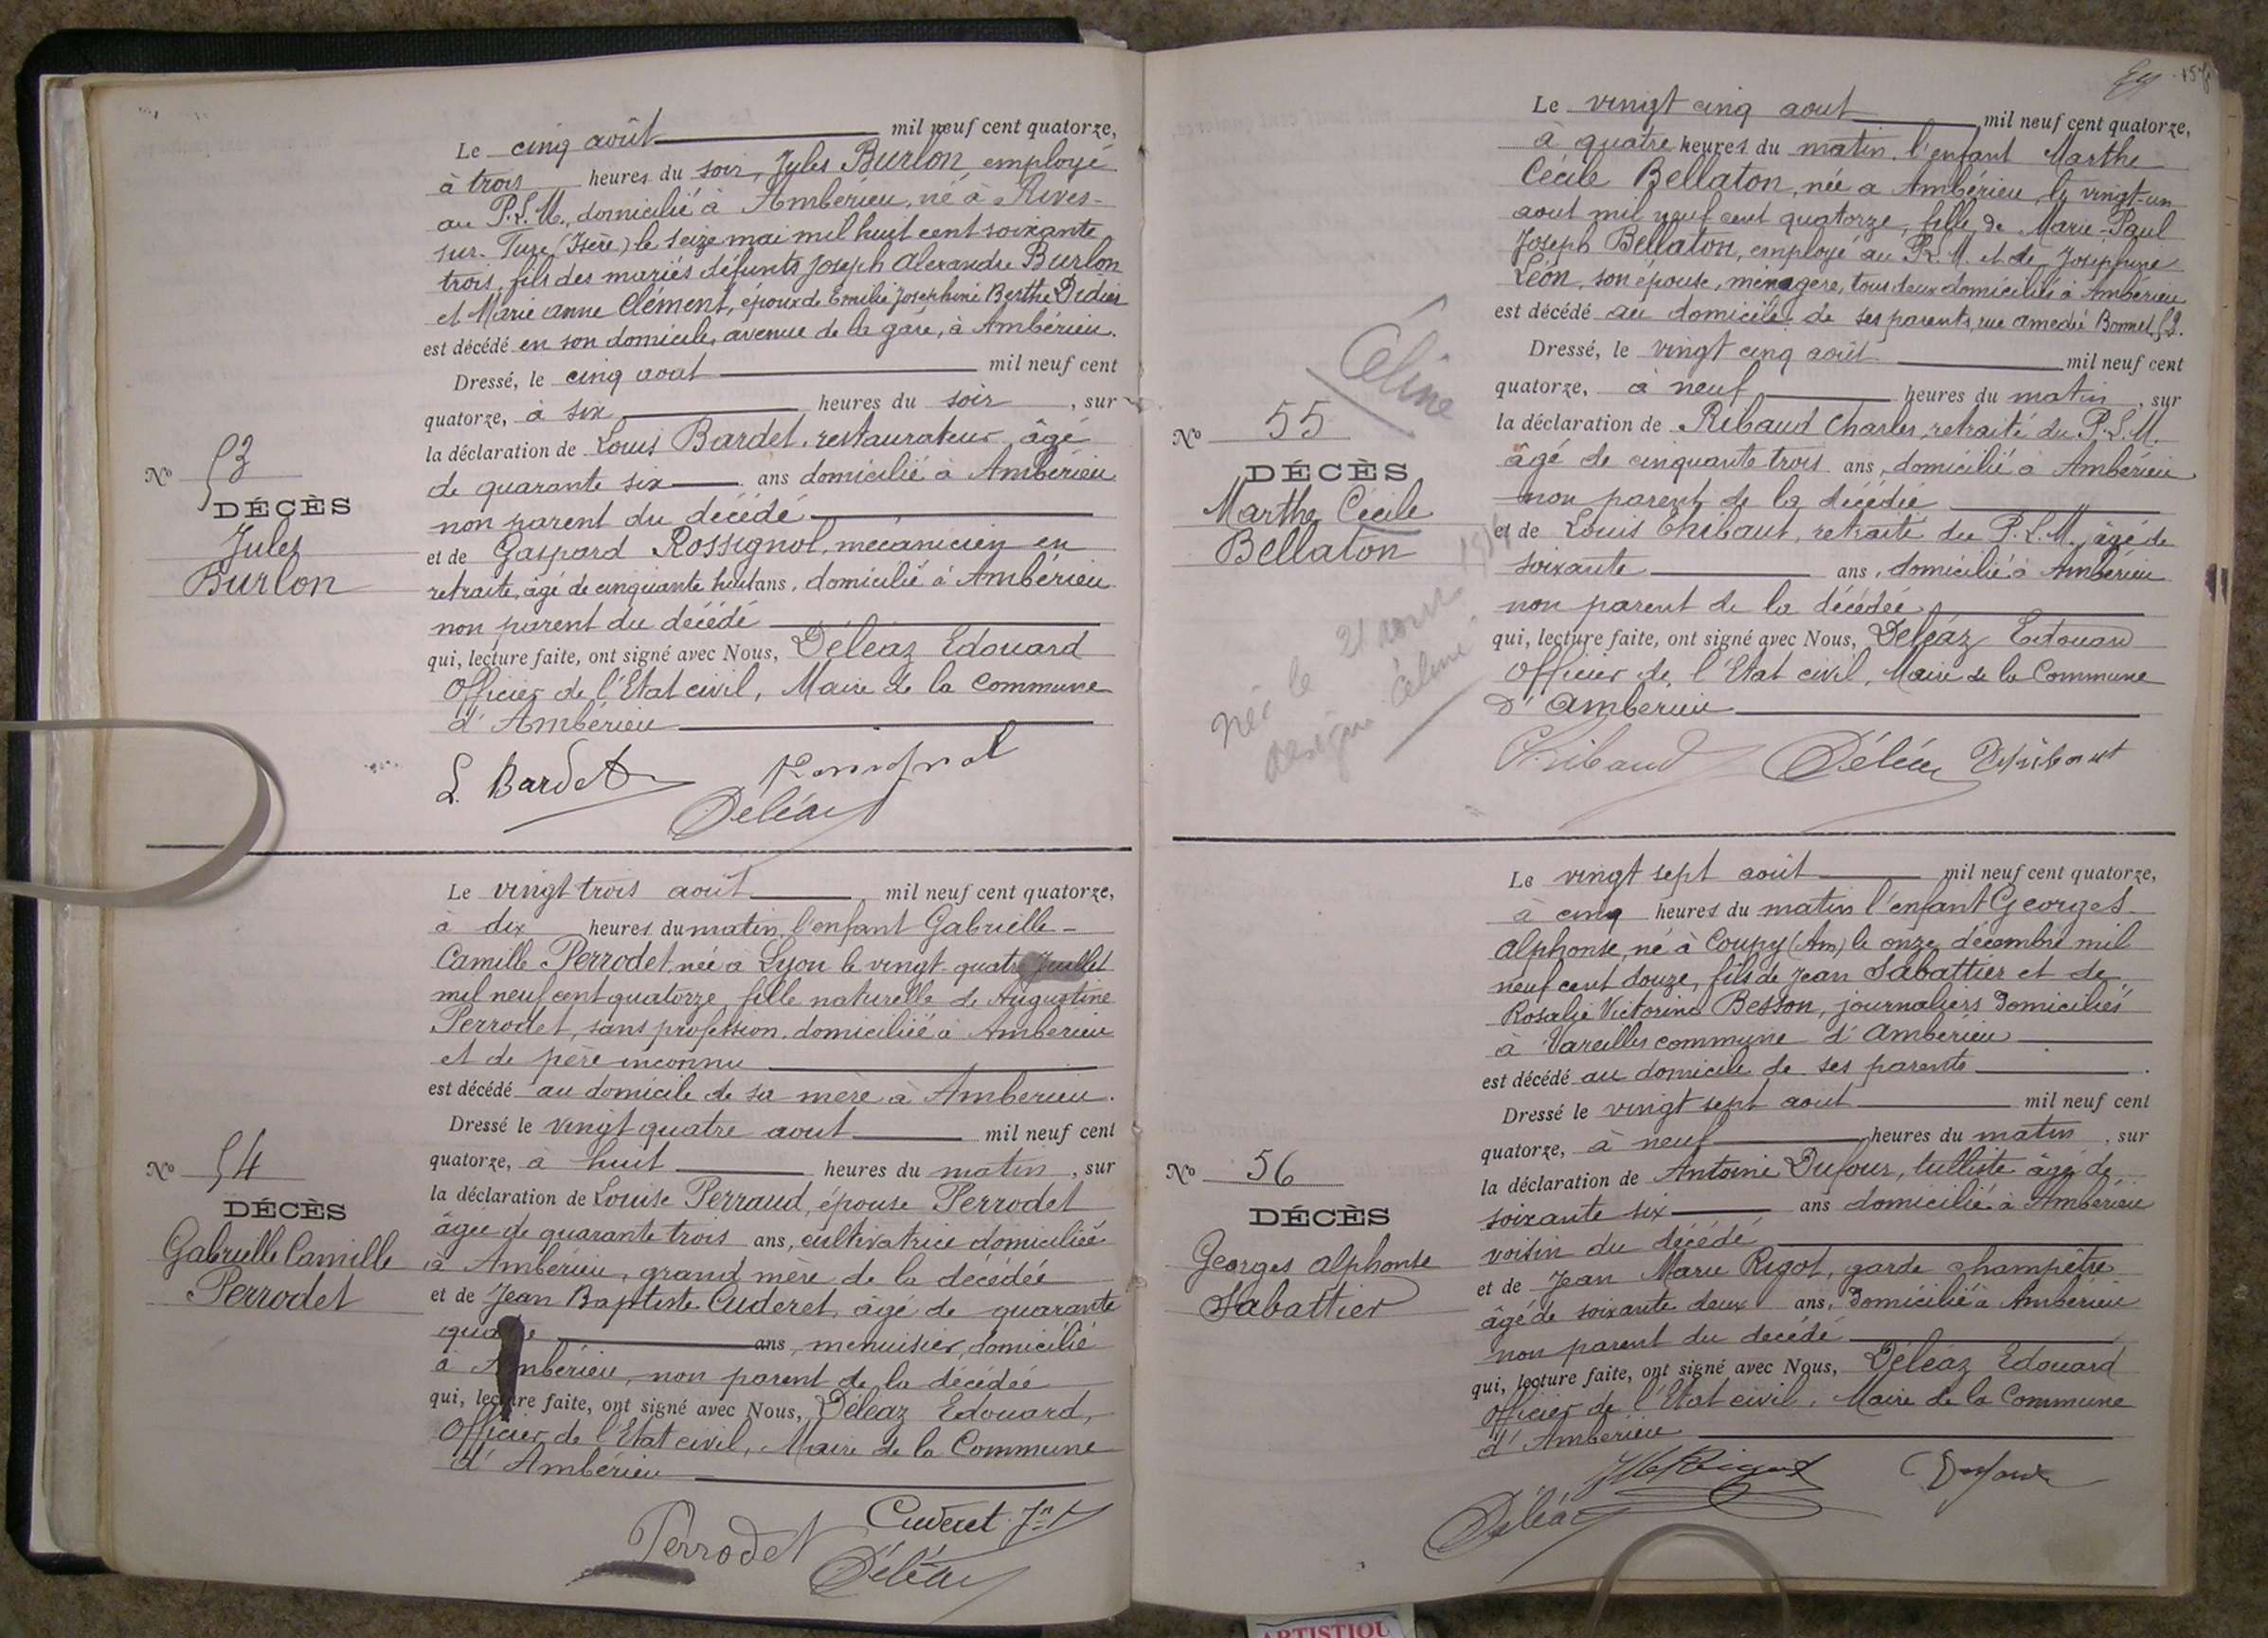 Le cinq août mil neuf cent quatorze,
à trois heures du soir, Jules Burlon, employé
au P.L.M., domicilié à Ambérieu, né à Rives-
sur-Fure (Isère) le seize mai mil huit cent soixante
trois, fils des mariés défunts Joseph Alexandre Burlon
et Marie Anne Clément, époux de Emilie Joséphine Berthe Didier
est décédé en son domicile, avenue de la gare, à Ambérieu.
Dressé, le cinq aout mil neuf cent
quatorze, à six heures du soir, sur
la déclaration de Louis Bardet, restaurateur, âgé
de quarante six ans domicilié à Ambérieu
non parent du décédé
et de Gaspard Rossignol, mécanicien en
retraite, âgé de cinquante huit ans, domicilié à Ambérieu
non parent du décédé
qui, lecture faite, ont signé avec Nous, Déléaz Edouard
Officier de l'Etat civil, Maire de la Commune
d'Ambérieu
L. Bardet Rossignol
Déléaz
No 53
DÉCÈS
Jules
Burlon
Le vingt trois août mil neuf cent quatorze,
à dix heures du matin, l'enfant Gabrielle-
Camille Perrodet, née à Lyon le vingt-quatre Juillet
mil neuf cent quatorze, fille naturelle de Augustine
Perrodet, sans profession, domiciliée à Ambérieu
et de père inconnu
est décédé au domicile de sa mère à Ambérieu.
Dressé le vingt quatre aout mil neuf cent
quatorze, à huit heures du matin, sur
la déclaration de Louise Perraud, épouse Perrodet
âgée de quarante trois ans, cultivatrice domiciliée
à Ambérieu, grand mère de la décédée
et de Jean Baptiste Cuderet, âgé de quarante
quatre ans, menuisier, domicilié
à Ambérieu, non parent de la décédée
qui, lecture faite, ont signé avec Nous, Déléaz Edouard,
Officier de l'Etat civil, Maire de la Commune
d'Ambérieu
Perrodet Cuderet
Déléaz
No 54
DÉCÈS
Gabrielle Camille
Perrodet
Le vingt cinq aout mil neuf cent quatorze,
à quatre heures du matin, l'enfant Marthe
Cécile Bellaton, née a Ambérieu, le vingt-un
aout mil neuf cent quatorze, fille de Marie-Paul
Joseph Bellaton, employé au P.L.M. et de Joséphine
Léon, son épouse, ménagère, tous deux domiciliés à Ambérieu
est décédé au domicile de ses parents, rue Amédée Bonnet, 52.
Dressé, le vingt cinq août mil neuf cent
quatorze, à neuf heures du matin, sur
la déclaration de Ribaud Charles, retraité du P.L.M.
âgé de cinquante trois ans, domicilié à Ambérieu
non parent de la décédée
et de Louis Thibaut, retraité du P.L.M., âgé de
soixante ans, domicilié à Ambérieu
non parent de la décédée
qui, lecture faite, ont signé avec Nous, Déléaz Edouard
Officier de l'Etat civil, Maire de la Commune
d'Ambérieu
Ch Ribaud Déléaz Thibaut
Céline
No 55
DÉCÈS
Marthe Cécile
Bellaton
née le 21 aout 1914
Céline
Le vingt sept août mil neuf cent quatorze,
à cinq heures du matin l'enfant Georges
Alphonse, né à Coupy (Ain) le onze décembre mil
neuf cent douze, fils de Jean Sabattier et de
Rosalie Victorine Besson, journaliers domiciliés
à Vareilles commune d'Ambérieu
est décédé au domicile de ses parents.
Dressé le vingt sept aout mil neuf cent
quatorze, à neuf heures du matin, sur
la déclaration de Antoine Dufour, tulliste âgé de
soixante six ans domicilié à Ambérieu
voisin du décédé
et de Jean Marie Rigot, garde champêtre
âgé de soixante deux ans, domicilié à Ambérieu
non parent du décédé
qui, lecture faite, ont signé avec Nous, Déléaz Edouard
Officier de l'Etat civil, Maire de la Commune
d'Ambérieu
JM Rigot Dufour
Déléaz
No 56
DÉCÈS
Georges Alphonse
Sabattier
ARTISTIQU